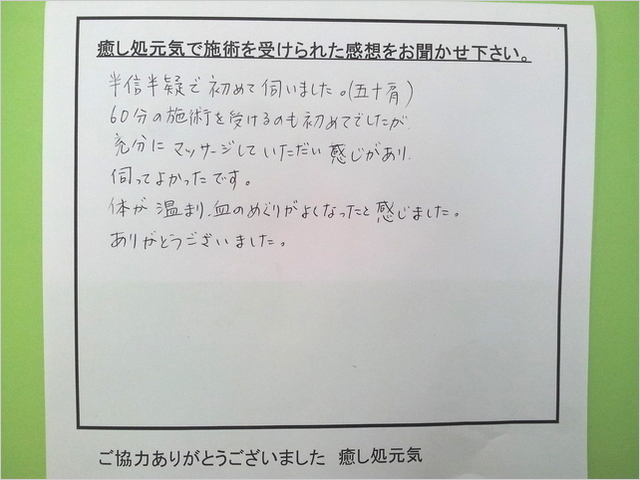 癒し処元気で施術を受けられた感想をお聞かせ下さい。
半信半疑で初めて伺いました。(五十肩)
60分の施術を受けるのも初めてでしたが
充分にマッサージしていただい感じがあり、
伺ってよかったです。
体が温まり、血のめぐりがよくなったと感じました。
ありがとうございました。
ご協力ありがとうございました 癒し処元気